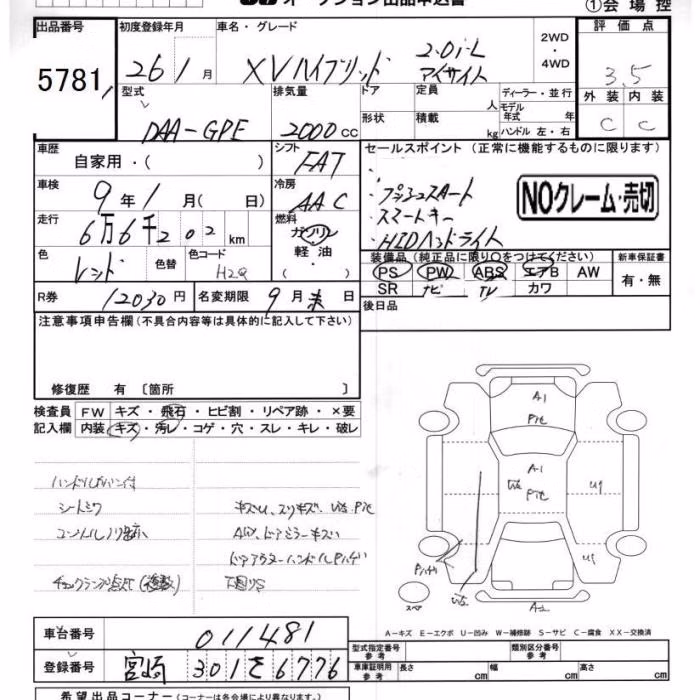 オークション出品申込書
①会場控
出品番号
5781
初度登録年月
26 1月
車名・グレード
XVハイブリッド 2.0i-L
アイサイト
2WD
・
4WD
評価点
3.5
外装 内装
C C
型式
DAA-GPE
排気量
2000cc
ドア
形状
定員 人
積載 kg
ディーラー・並行
モデル
年式 年
ハンドル 左・右
車歴
自家用・( )
シフト
FAT
車検
9年1月( 日)
冷房
AAC
走行
6万6千202km
燃料
ガソリン
軽油
色
レッド
色替
色コード
H2Q
R券
12030円
名変期限
9月末日
セールスポイント(正常に機能するものに限ります)
・プッシュスタート
・スマートキー
・HIDヘッドライト
NOクレーム・売切
装備品(純正品に限り○をつけてください)
PS PW ABS エアB AW
SR ナビ TV カワ
新車保証書
有・無
後日品
注意事項申告欄(不具合内容等は具体的に記入して下さい)
修復歴 有〔箇所 〕
検査員
記入欄
FW キズ・飛石・ヒビ割・リペア跡・×要
内装 キズ・汚レ・コゲ・穴・スレ・キレ・破レ
シートシワ
キズU、スリキズ、
AW、ドアミラーキズ
チェックランプ点灯(複数)
下廻りS
A1
A-1
U1
U1
A-2
スペア
A-キズ E-エクボ U-凹み W-補修跡 S-サビ C-腐食 XX-交換済
車台番号
011481
登録番号
宮崎 301 6776
型式指定番号
参考
類別区分番号
参考
車庫証明用
参考
長さ cm
幅 cm
高さ cm
希望出品コーナー(コーナーは各会場により異なります。)